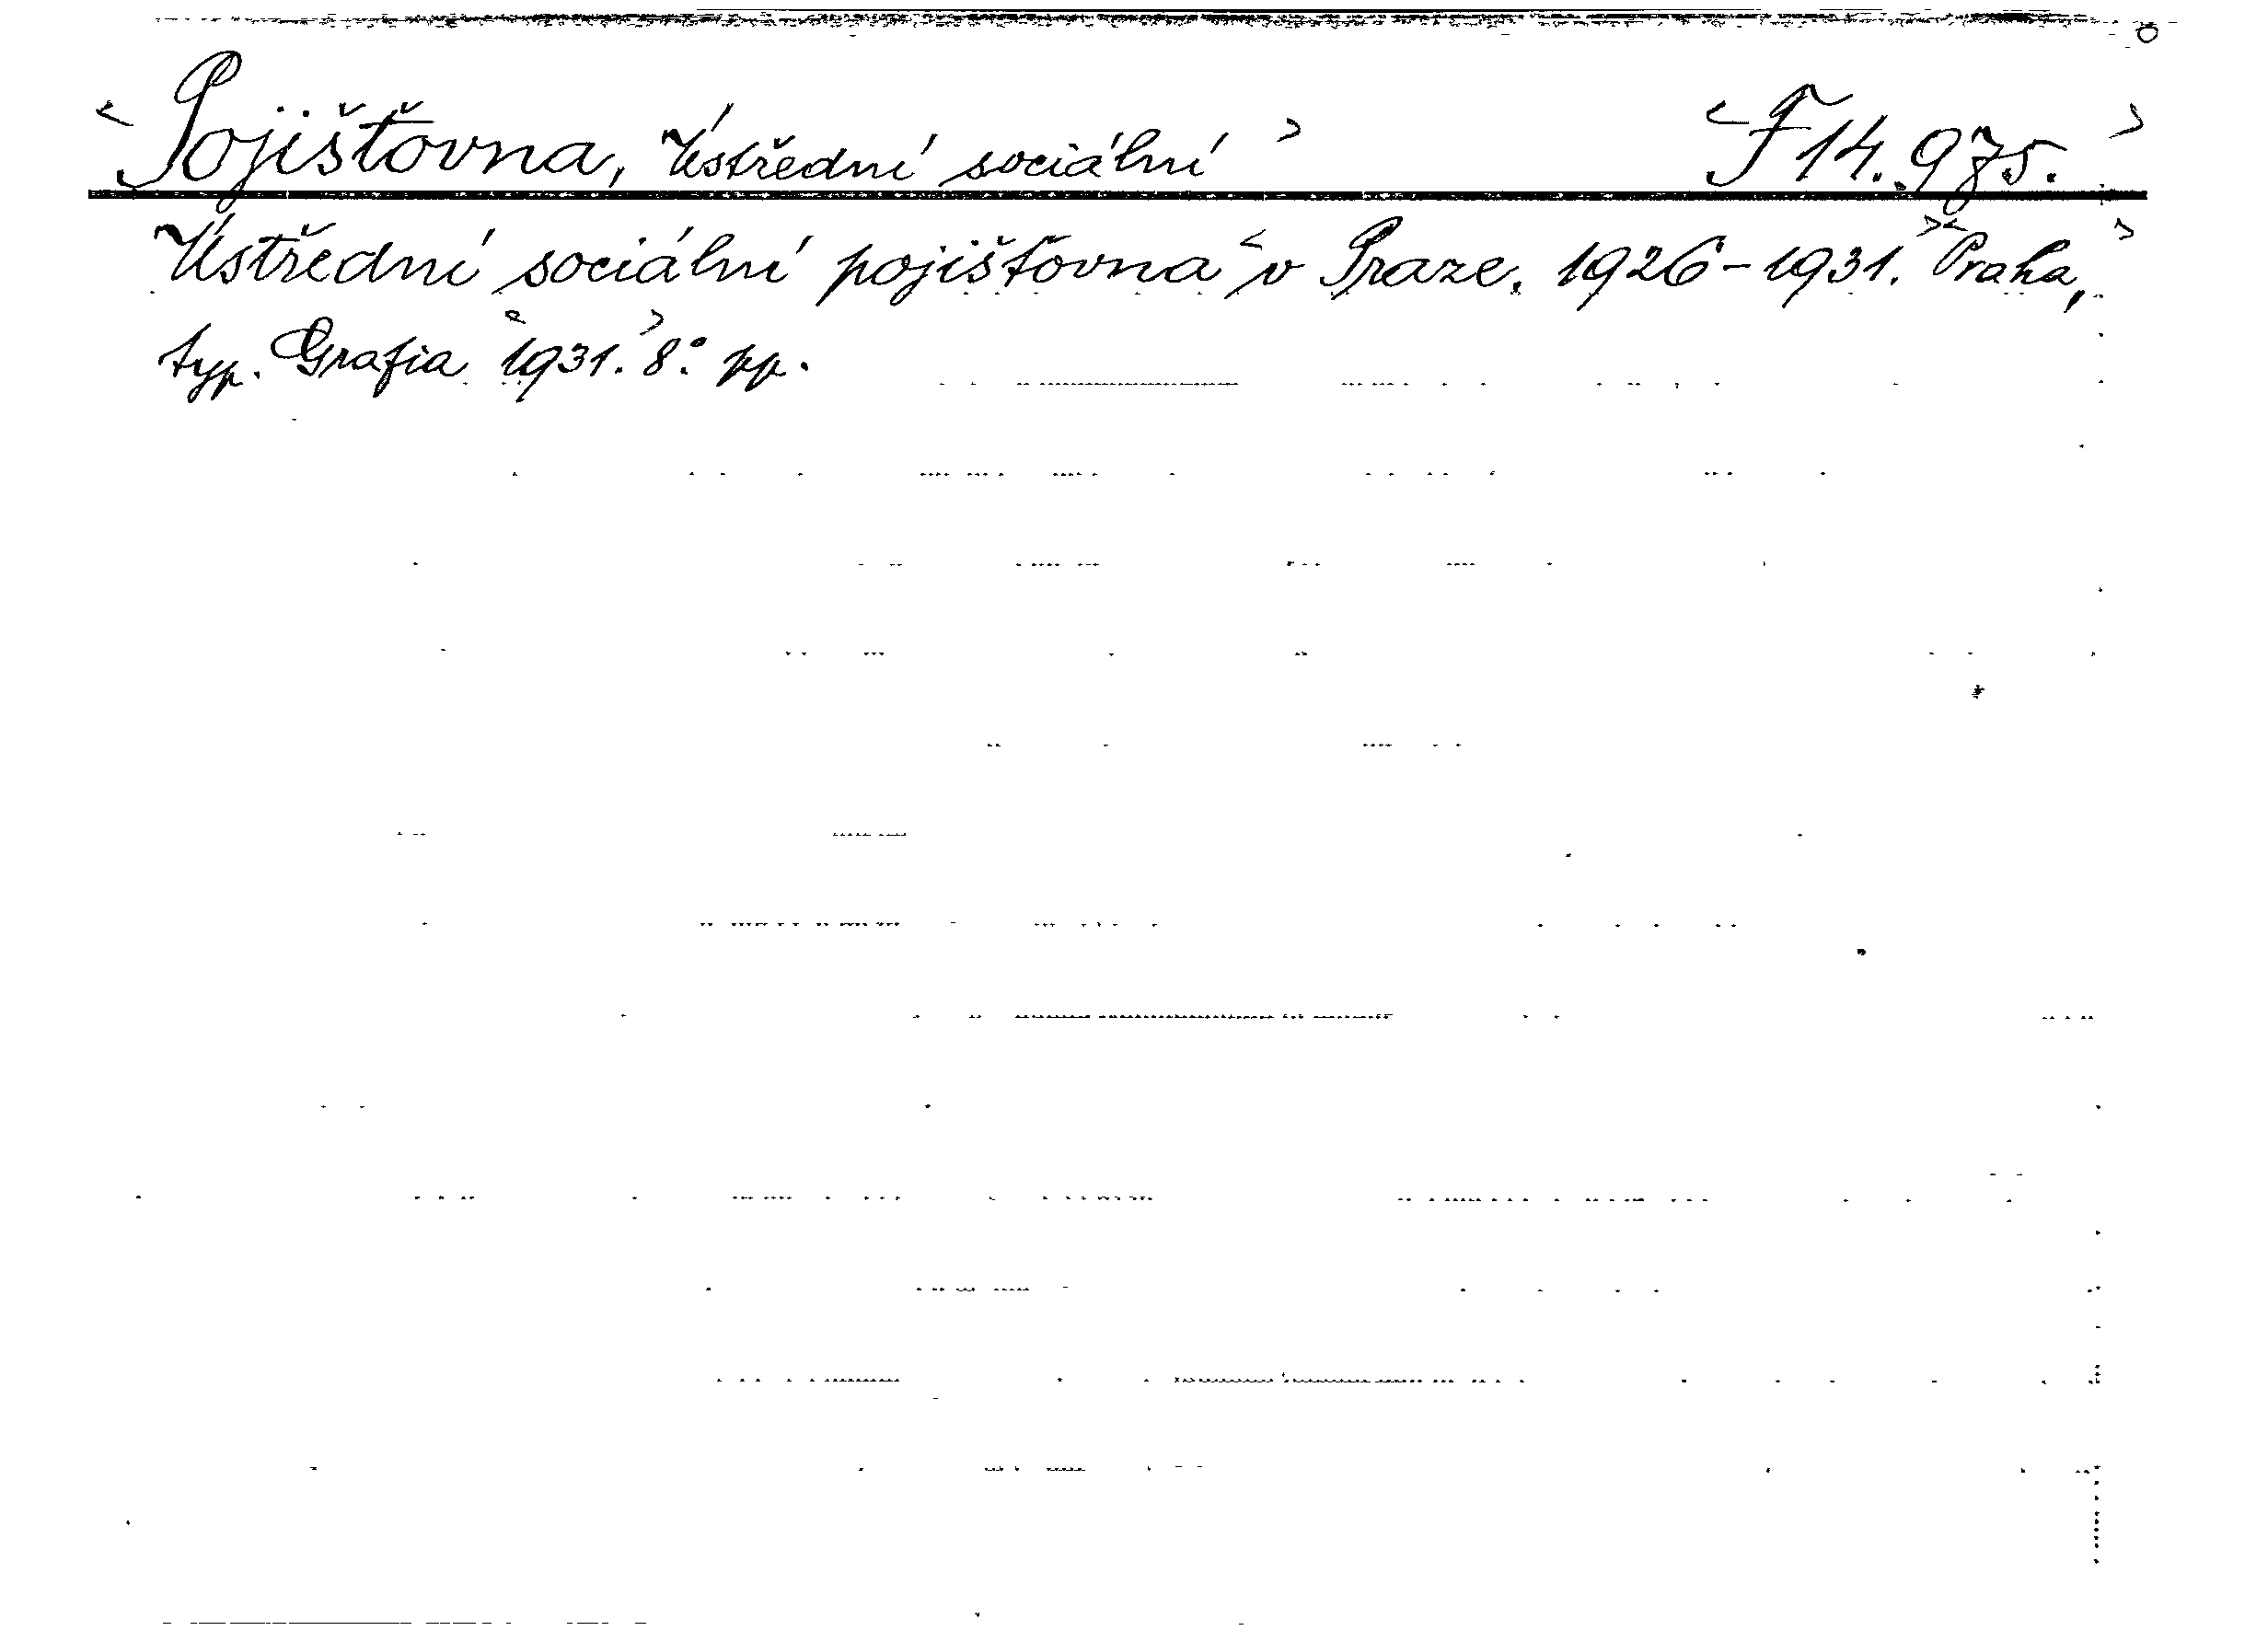 <Pojišťovna, Ústřední sociální> <F 14.975.>
Ústřední sociální pojišťovna <v Praze. 1926-1931.> <Praha,>
typ. Grafia <1931.> 8.° pp.